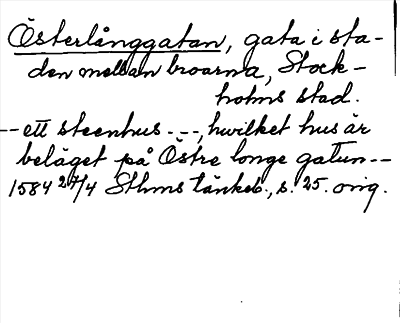 Österlånggatan, gata i sta-
den mellan broarna, Stock-
holms stad.
-- ett steenhus - - -, hwilket hus är
beläget på Östre longe gatun --
1584 27/4 Sthms tänkeb., s. 25. orig.